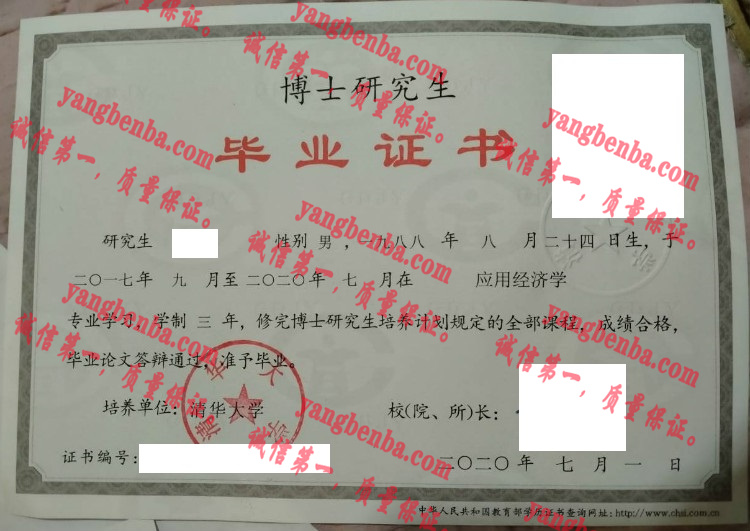 博士研究生
毕业证书
研究生 性别 男 ,一九八八 年 八 月二十四日生,于
二〇一七年 九 月至二〇二〇年 七 月在 应用经济学
专业学习,学制 三 年,修完博士研究生培养计划规定的全部课程,成绩合格,
毕业论文答辩通过,准予毕业。
培养单位:清华大学 校(院、所)长:
证书编号: 二〇二〇年 七 月 一 日
中华人民共和国教育部学历证书查询网址:http://www.chsi.com.cn
清华大学
yangbenba.com
诚信第一,质量保证。
yangbenba.com
诚信第一,质量保证。
yangbenba.com
诚信第一,质量保证。
yangbenba.com
诚信第一,质量保证。
yangbenba.com
诚信第一,质量保证。
yangbenba.com
诚信第一,质量保证。
yangbenba.com
诚信第一,质量保证。
yangbenba.com
诚信第一,质量保证。
yangbenba.com
诚信第一,质量保证。